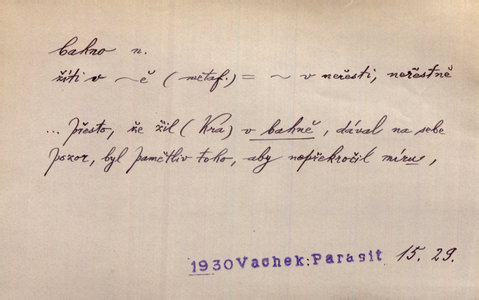 bahno n.
žíti v ~ě (metaf.) = ~ v neřesti, neřestně
... přesto, že žil (Krá) v bahně, dával na sebe
pozor, byl pamětliv toho, aby nepřekročil míru,
1930 Vachek: Parasit 15. 29.